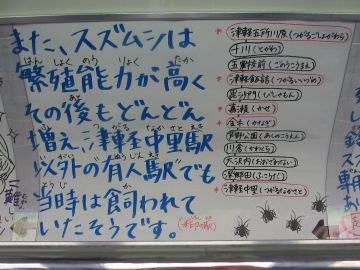 また、スズムシは
繁殖能力が高く
はんしょくのうりょく たか
その後もどんどん
増え、津軽中里駅
以外の有人駅でも
当時は飼われて
いたそうです。
(※印の駅)
※津軽五所川原(つがるごしょがわら)
十川(とがわ)
五農校前(ごのうこうまえ)
※津軽飯詰(つがるいいづめ)
毘沙門(びしゃもん)
※嘉瀬(かせ)
※金木(かなぎ)
芦野公園(あしのこうえん)
川倉(かわくら)
大沢内(おおざわない)
深郷田(ふこうだ)
※津軽中里(つがるなかさと)